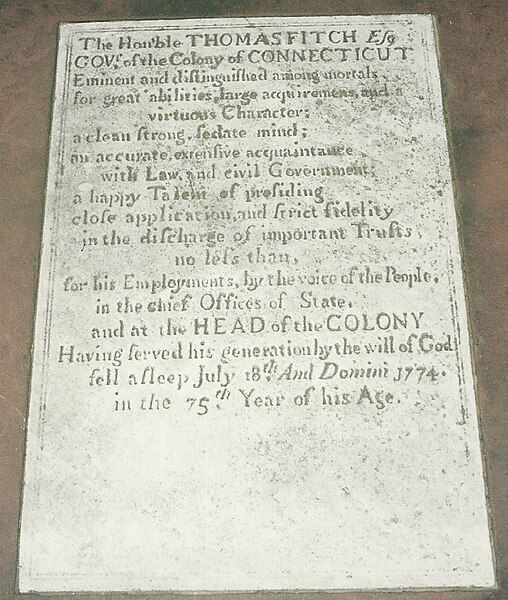 The Hon'ble THOMAS FITCH Esq
GOV.r of the Colony of CONNECTICUT
Eminent and distinguished among mortals
for great abilities, large acquirement, and a
virtuous Character;
a clean strong, sedate mind;
an accurate, extensive acquaintance
with Law, and civil Government;
a happy Talent of presiding
close application, and strict fidelity
in the discharge of important Trusts,
no less than,
for his Employments, by the voice of the People,
in the chief Offices of State,
and at the HEAD of the COLONY
Having served his generation by the will of God
fell asleep July 18.th And Domini 1774.
in the 75.th Year of his Age.